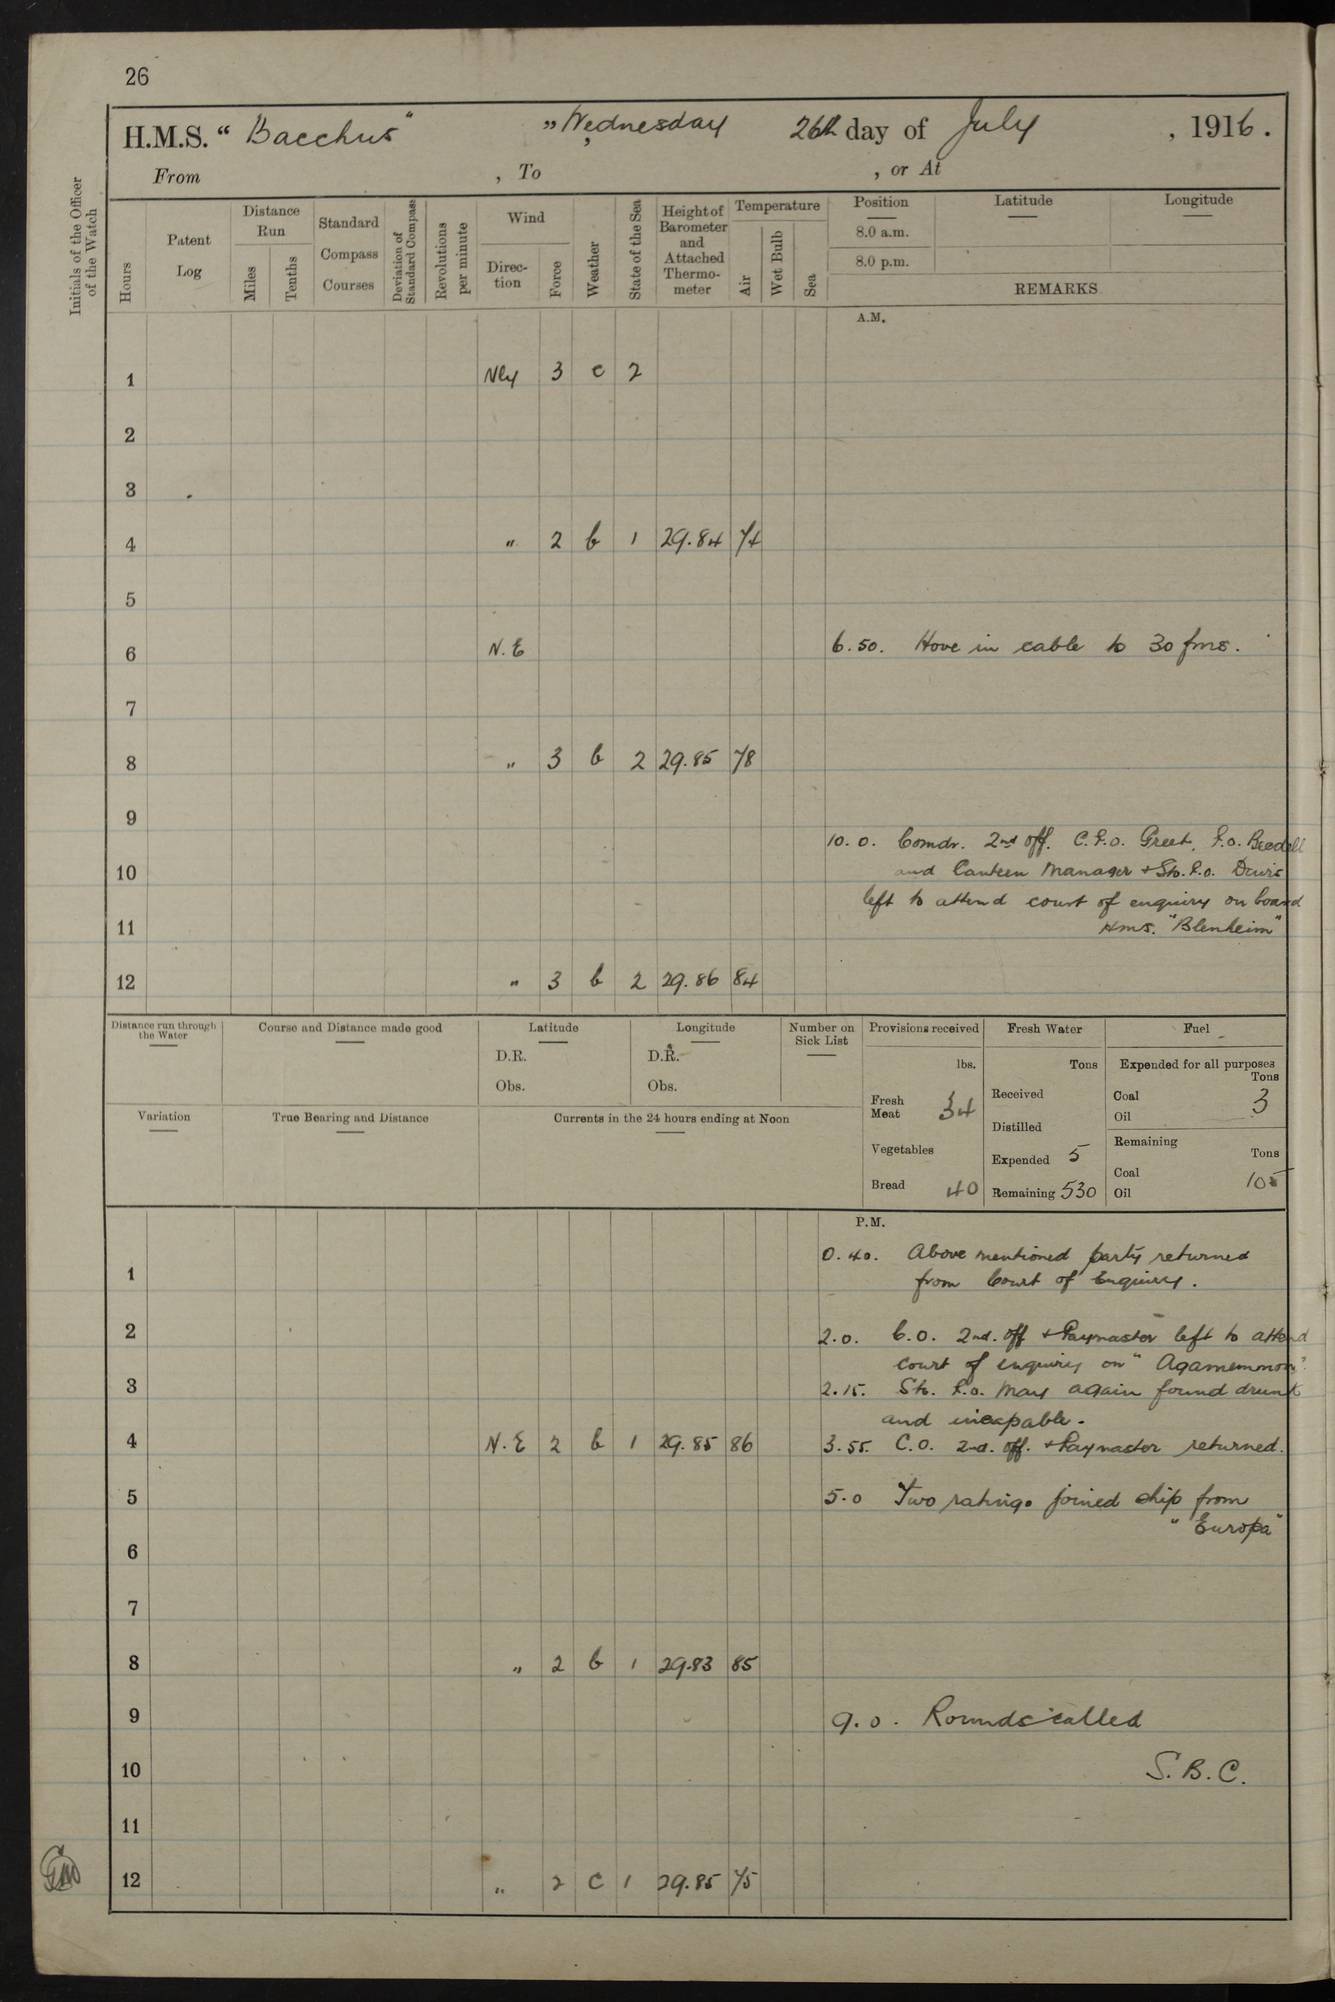 26
H.M.S. “ Bacchus ” „ Wednesday , 26th day of July , 1916.
From , To , or At
Initials of the Officer of the Watch
Hours
Patent Log
Distance Run
Miles
Tenths
Standard Compass Courses
Deviation of Standard Compass
Revolutions per minute
Wind
Direc-tion
Force
Weather
State of the Sea
Height of Barometer and Attached Thermo-meter
Temperature
Air
Wet Bulb
Sea
Position Latitude Longitude
8.0 a.m.
8.0 p.m.
REMARKS
A.M.
1 Nly 3 c 2
2
3
4 „ 2 b 1 29.84 74
5
6 N.E 6.50. Hove in cable to 30 fms.
7
8 „ 3 b 2 29.85 78
9
10.0. Comdr. 2nd off. C.P.O. Greet, P.O. Beedell
10 and Canteen Manager + Sto. P.O. Davis
left to attend court of enquiry on board
11 H.M.S. "Blenheim"
12 „ 3 b 2 29.86 84
Distance run through the Water
Course and Distance made good
Latitude
D.R.
Obs.
Longitude
D.R.
Obs.
Number on Sick List
Provisions received
lbs.
Fresh Meat 34
Vegetables
Bread 40
Fresh Water
Tons
Received
Distilled
Expended 5
Remaining 530
Fuel
Expended for all purposes
Tons
Coal 3
Oil
Remaining
Tons
Coal 105
Oil
Variation
True Bearing and Distance
Currents in the 24 hours ending at Noon
P.M.
0.40. Above mentioned party returned
1 from Court of Enquiry.
2 2.0. C.O. 2nd. off + Paymaster left to attend
court of enquiry on "Agamemnon".
3 2.15. Sto. P.O. May again found drunk
and incapable.
4 N.E 2 b 1 29.85 86 3.55. C.O. 2nd. off. + Paymaster returned.
5 5.0 Two ratings joined ship from
"Europa"
6
7
8 „ 2 b 1 29.83 85
9 9.0. Rounds called
10 S.B.C.
11
12 „ 2 c 1 29.85 75